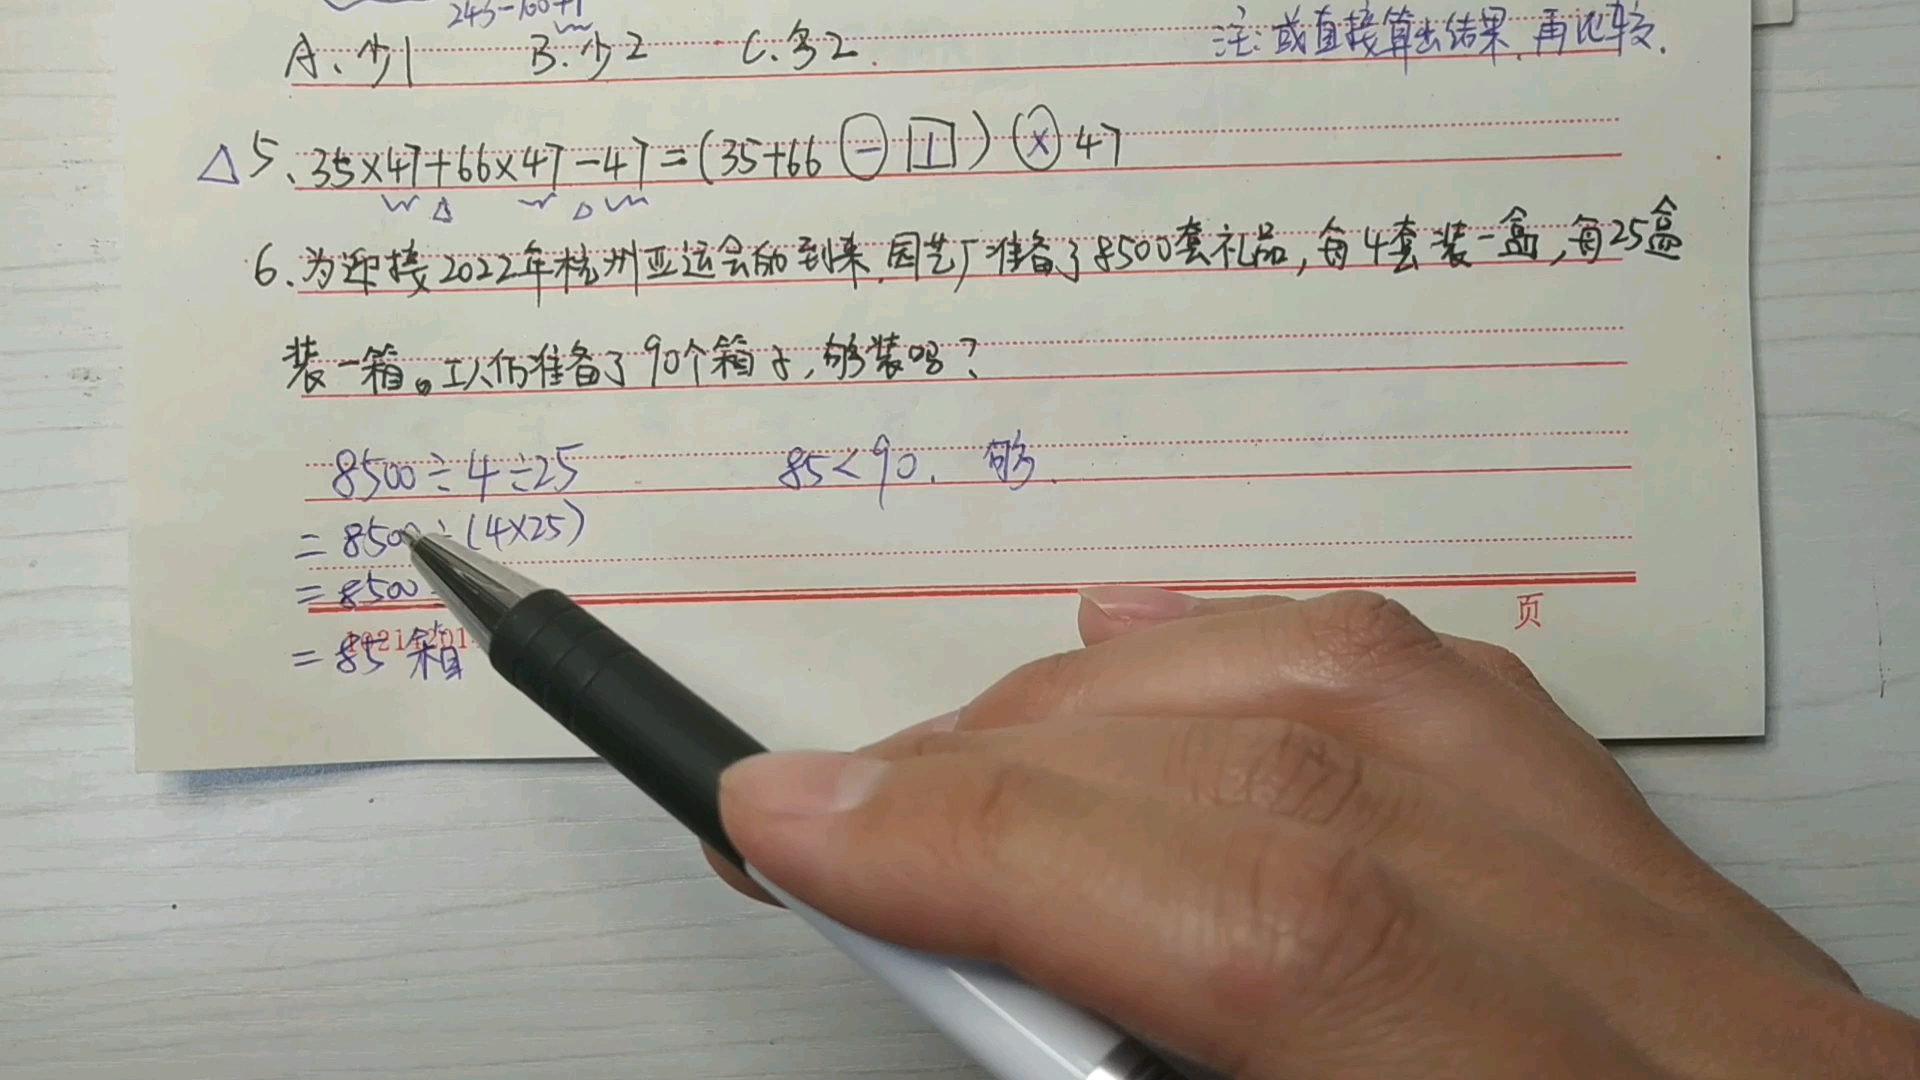 243-100+1
A、少1 B.少2 C.多2.
注:或直接算出结果,再比较.
△5、35×47+66×47-47=(35+66-1)×47
6.为迎接2022年杭州亚运会的到来,园艺厂准备了8500套礼品,每4套装一盒,每25盒
装一箱。工人们准备了90个箱子,够装吗?
8500÷4÷25 85<90. 够.
=8500÷(4×25)
=8500
=85箱
页